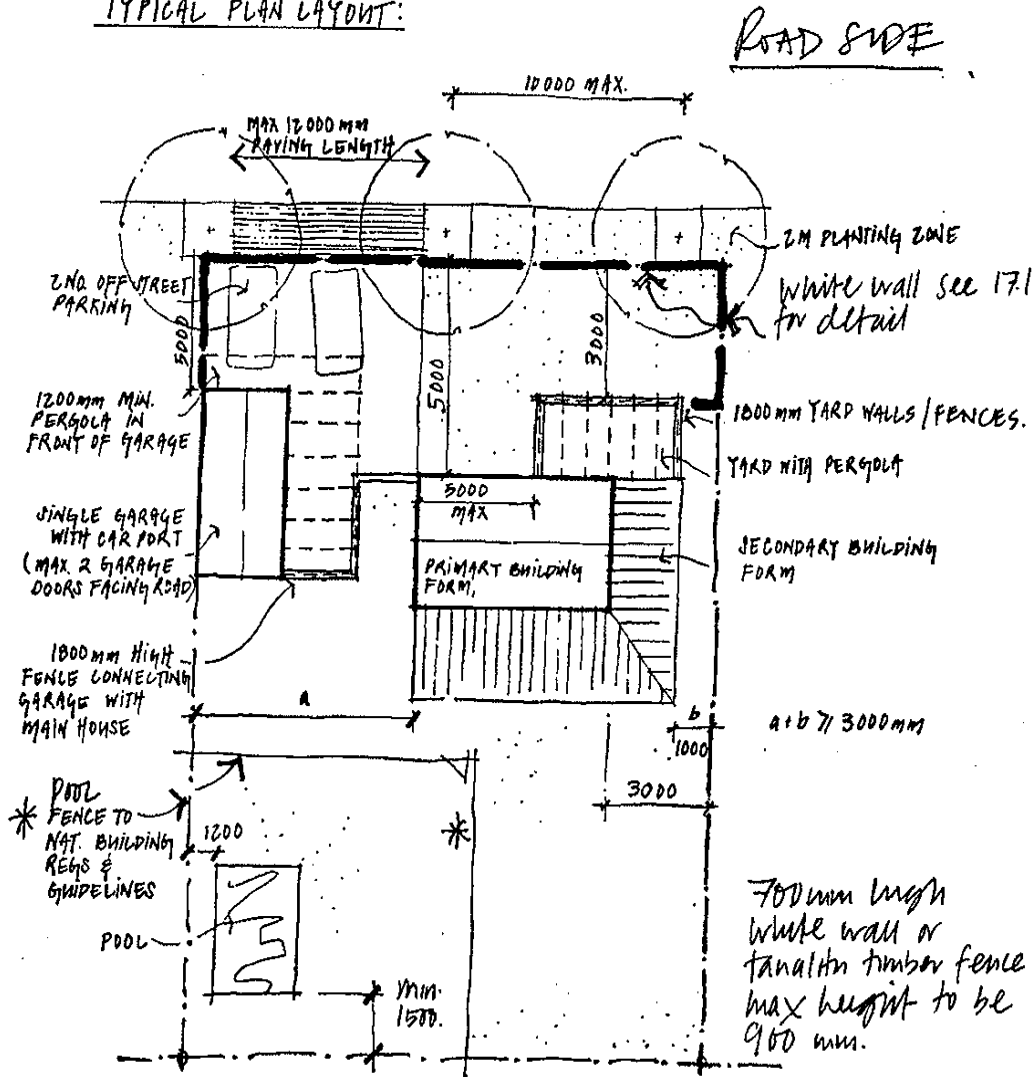 TYPICAL PLAN LAYOUT:
ROAD SIDE
10000 MAX.
MAX 12000 mm
PAVING LENGTH
2M PLANTING ZONE
2NO. OFF STREET
PARKING
white wall see 17.1
for detail
5000
5000
3000
1200mm MIN.
PERGOLA IN
FRONT OF GARAGE
1800mm YARD WALLS/FENCES.
YARD WITH PERGOLA
5000
MAX
SINGLE GARAGE
WITH CAR PORT
(MAX. 2 GARAGE
DOORS FACING ROAD)
PRIMARY BUILDING
FORM,
SECONDARY BUILDING
FORM
1800mm HIGH
FENCE CONNECTING
GARAGE WITH
MAIN HOUSE
a
b
a+b ⩾ 3000mm
1000
3000
* POOL
FENCE TO
NAT. BUILDING
REGS &
GUIDELINES
*
1200
POOL
min.
1500.
700mm high
white wall or
tanalith timber fence
max height to be
900 mm.